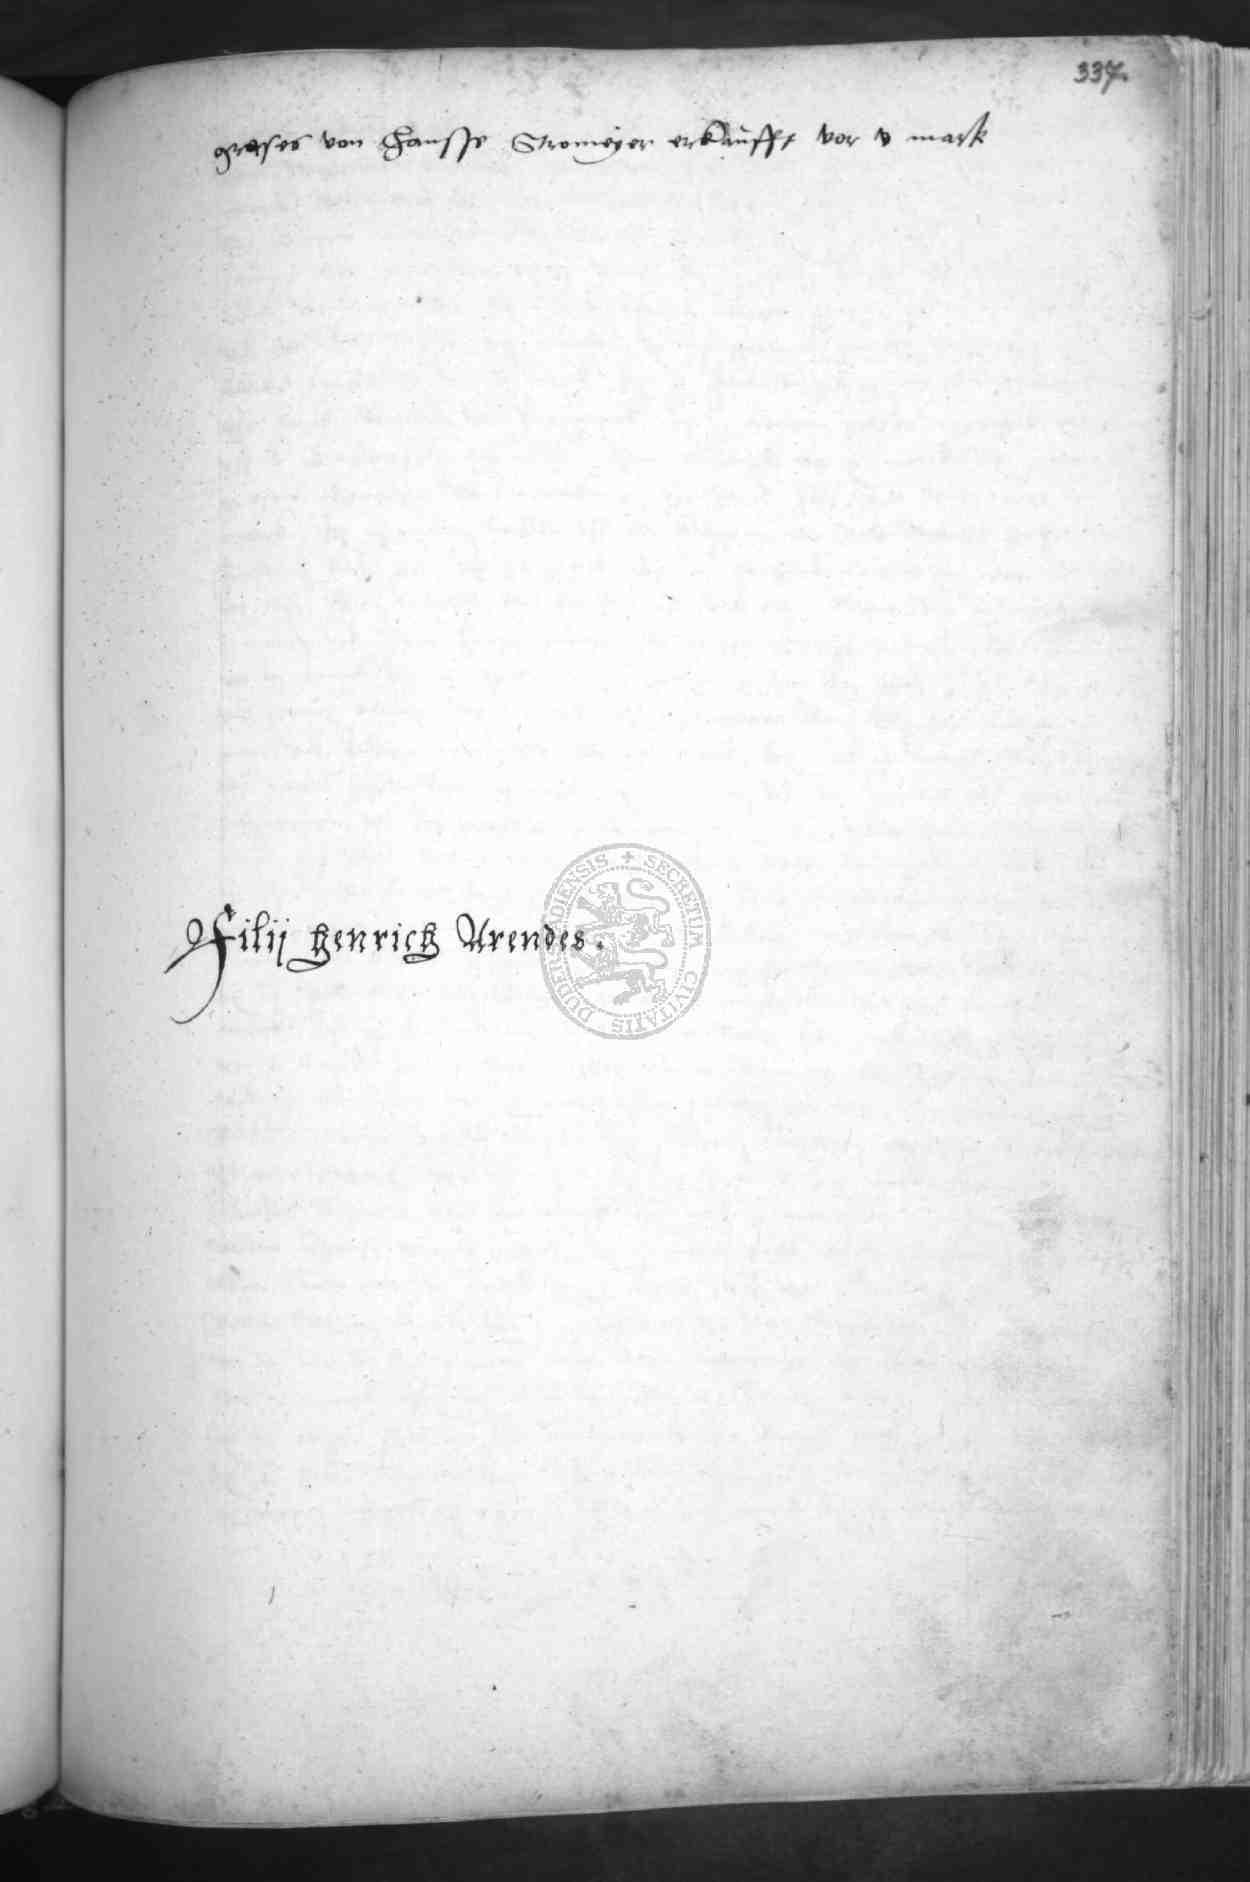 337.
grases von Hansse Stromeyer erkaufft vor v mark
Filij Henrich Arendes.
SECRETUM CIVITATIS DUDERSTADIENSIS